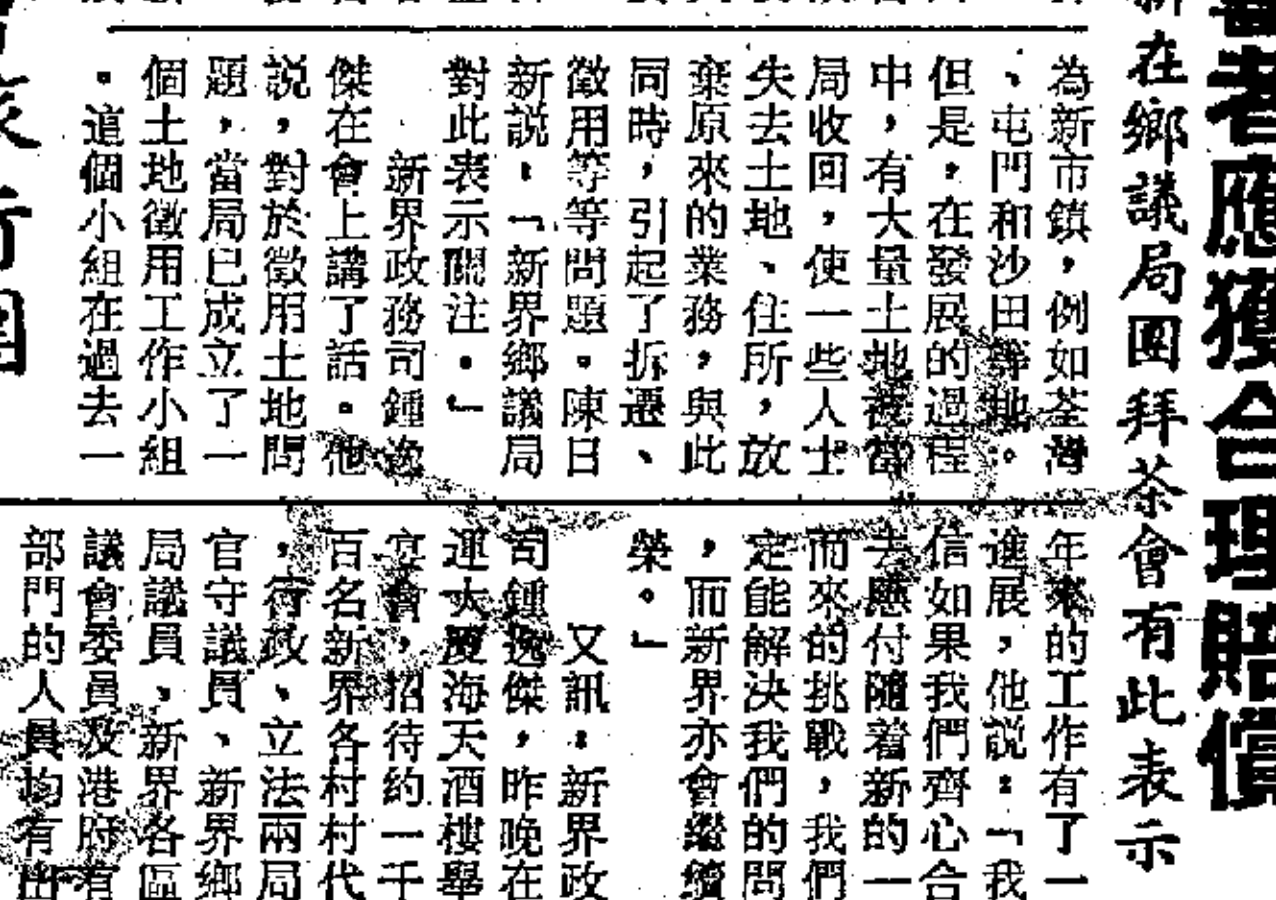 者應獲合理賠償
在鄉議局團拜茶會有此表示
為新市鎮，例如荃灣
、屯門和沙田等地。
但是，在發展的過程
中，有大量土地被當
局收回，使一些人士
失去土地、住所，放
棄原來的業務，與此
同時，引起了拆遷、
徵用等等問題。陳日
新說，「新界鄉議局
對此表示關注。」
新界政務司鍾逸
傑在會上講了話。他
説，對於徵用土地問
題，當局已成立了一
個土地徵用工作小組
。這個小組在過去一
年來的工作有了一
進展，他説：「我
信如果我們齊心合
去應付隨着新的一
而來的挑戰，我們
定能解決我們的問
，而新界亦會繼續
榮。」
又訊：新界政
司鍾逸傑，昨晚在
運大廈海天酒樓舉
宴會，招待約一千
百名新界各村村代
，行政、立法兩局
官守議員、新界鄉
局議員、新界各區
議會委員及港府有
部門的人員均有出